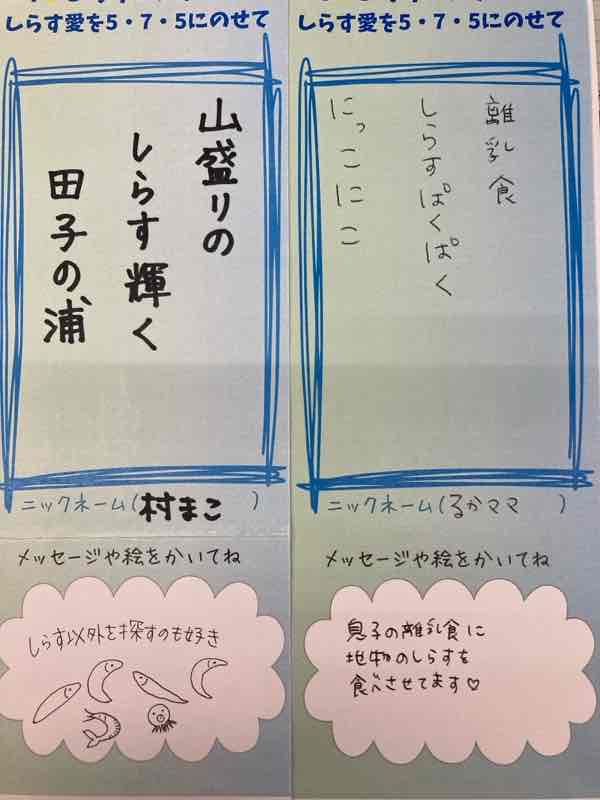 しらす愛を5・7・5にのせて
山盛りの
しらす輝く
田子の浦
ニックネーム(村まこ)
メッセージや絵をかいてね
しらす以外を探すのも好き
しらす愛を5・7・5にのせて
離乳食
しらすぱくぱく
にっこにこ
ニックネーム(るかママ)
メッセージや絵をかいてね
息子の離乳食に
地物のしらすを
食べさせてます♡